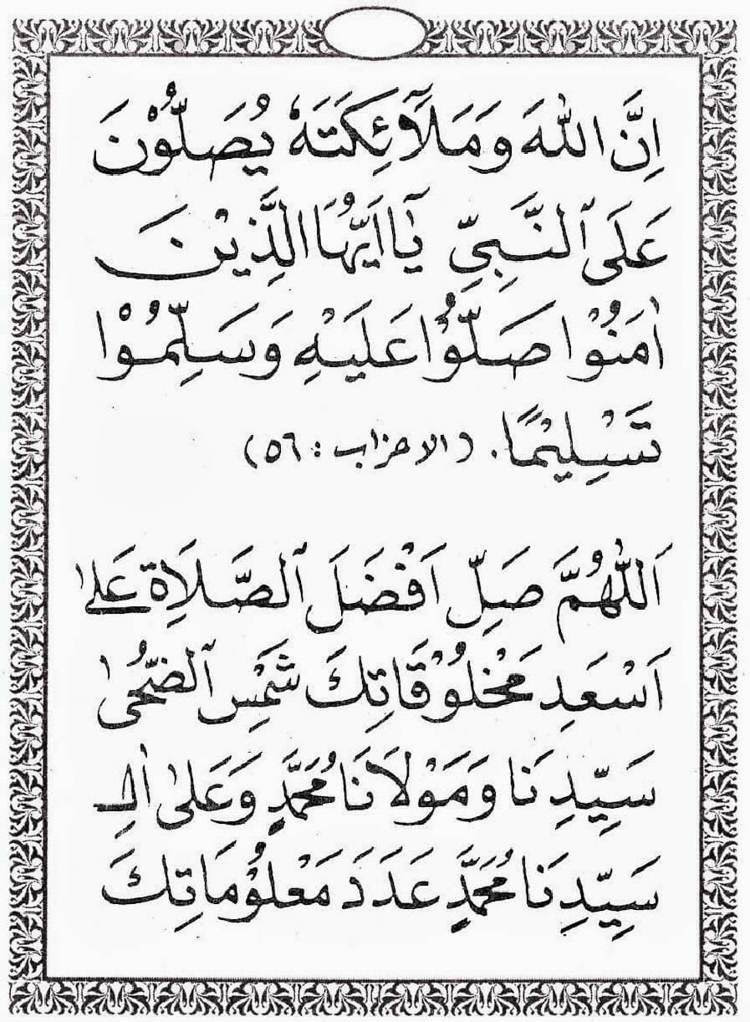 اِنَّ اللهَ وَمَلَآئِكَتَهٗ يُصَلُّوْنَ
عَلَى ٱلنَّبِيِّ يَٰٓااَيُّهَا الَّذِيْنَ
اٰمَنُوْا صَلُّوْا عَلَيْهِ وَسَلِّمُوْا
تَسْلِيْمًا. (الاحزاب : ٥٦)
اَللّٰهُمَّ صَلِّ اَفْضَلَ ٱلصَّلَاةِ عَلىٰ
اَسْعَدِ مَخْلُوْقَاتِكَ شَمْسِ ٱلضُّحىٰ
سَيِّدِنَا وَمَوْلَانَا مُحَمَّدٍ وَعَلىٰ اٰلِ
سَيِّدِنَا مُحَمَّدٍ عَدَدَ مَعْلُوْمَاتِكَ